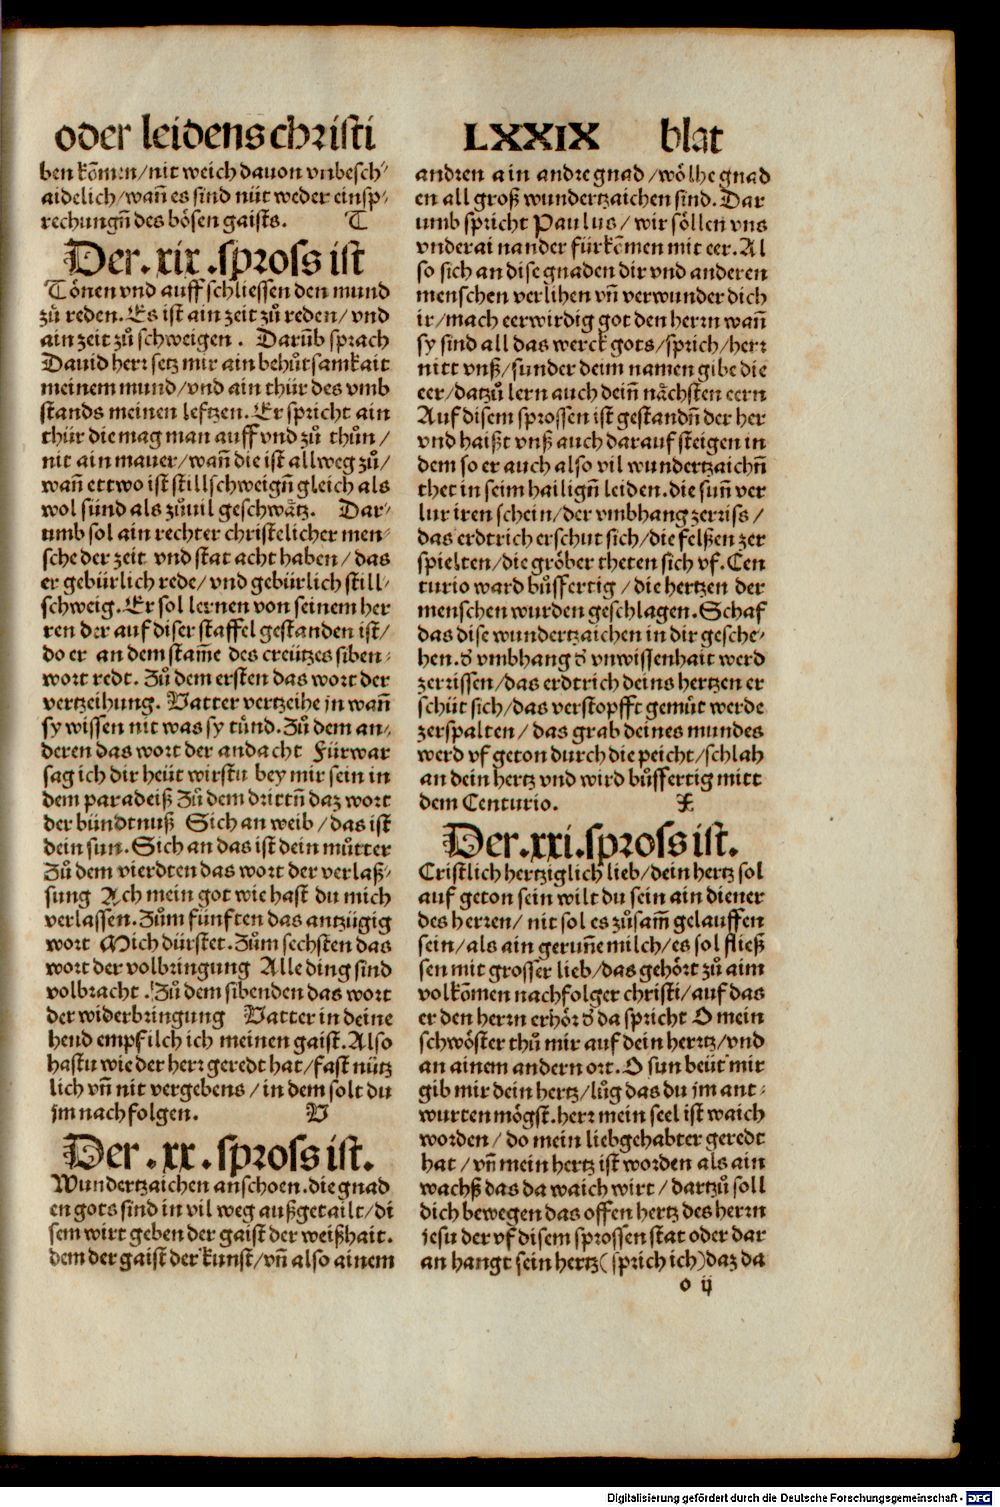 oder leidens christi LXXIX blat
ben kõmen/nit weich dauon vnbesch⸗
aidelich/wañ es sind nüt weder einsp⸗
rechungñ des bösen gaists. T
Der.xix.spross ist
Tönen vnd auff schliessen den mund
zů reden. Es ist ain zeit zů reden/vnd
ain zeit zů schweigen. Darũb sprach
Dauid herr setz mir ain behůtsamkait
meinem mund/vnd ain thür des vmb
stands meinen leftzen. Er spricht ain
thür die mag man auff vnd zů thůn/
nit ain mauer/wañ die ist allweg zů/
wañ ettwo ist stillschweigñ gleich als
wol sünd als zůuil geschwätz. Dar⸗
umb sol ain rechter christelicher men⸗
sche der zeit vnd stat acht haben/das
er gebürlich rede/vnd gebürlich still⸗
schweig. Er sol lernen von seinem her
ren der auf diser staffel gestanden ist/
do er an dem stam̃e des creützes siben⸗
wort redt. Zů dem ersten das wort der
vertzeihung. Vatter vertzeihe jn wañ
sy wissen nit was sy tünd. Zů dem an⸗
deren das wort der andacht Fürwar
sag ich dir heüt wirstu bey mir sein in
dem paradeiß Zů dem drittñ daz wort
der bündtnuß Sich an weib/das ist
dein sun. Sich an das ist dein můtter
Zů dem vierdten das wort der verlaß⸗
sung Ach mein got wie hast du mich
verlassen. Zům fünften das antzügig
wort Mich dürstet. Zům sechsten das
wort der volbringung Alle ding sind
volbracht. Zů dem sibenden das wort
der widerbringung Vatter in deine
hend empfilch ich meinen gaist. Also
hastu wie der herr geredt hat/fast nütz
lich vñ nit vergebens/in dem solt du
jm nachfolgen. V
Der.xx.spross ist.
Wundertzaichen anschoen. die gnad
en gots sind in vil weg außgetailt/di
sem wirt geben der gaist der weißhait.
dem der gaist der kunst/vñ also ainem
andren ain andre gnad/wölhe gnad
en all groß wundertzaichen sind. Dar
umb spricht Paulus/wir söllen vns
vnderainander fürkõmen mit eer. Al
so sich an dise gnaden dir vnd anderen
menschen verlihen vñ verwunder dich
ir/mach eerwirdig got den herrn wañ
sy sind all das werck gots/sprich/herr
nitt vnß/sunder deim namen gibe die
eer/datzů lern auch deiñ nächsten eern
Auf disem sprossen ist gestandñ der her
vnd haißt vnß auch darauf steigen in
dem so er auch also vil wundertzaichñ
thet in seim hailigñ leiden. die suñ ver
lur iren schein/der vmbhang zerriss/
das erdtrich erschut sich/die felßen zer
spielten/die gröber theten sich vf. Cen
turio ward bůssfertig/die hertzen der
menschen wurden geschlagen. Schaf
das dise wundertzaichen in dir gesche⸗
hen. d̕ vmbhang d̕ vnwissenhait werd
zerrissen/das erdtrich deins hertzen er
schüt sich/das verstopfft gemüt werde
zerspalten/das grab deines mundes
werd vf geton durch die peicht/schlah
an dein hertz vnd wird bůssfertig mitt
dem Centurio. X
Der.xxi.spross ist.
Cristlich hertziglich lieb/dein hertz sol
auf geton sein wilt du sein ain diener
des herren/nit sol es zůsam̃ gelauffen
sein/als ain geruñe milch/es sol fließ
sen mit grosser lieb/das gehört zů aim
volkõmen nachfolger christi/auf das
er den herrn erhör d̕ da spricht O mein
schwöster thů mir auf dein hertz/vnd
an ainem andern ort. O sun beüt mir
gib mir dein hertz/lůg das du jm ant⸗
wurten mögst. herr mein seel ist waich
worden/do mein liebgehabter geredt
hat/vñ mein hertz ist worden als ain
wachß das da waich wirt/dartzů soll
dich bewegen das offen hertz des herrn
jesu der vf disem sprossen stat oder dar
an hangt sein hertz(sprich ich)daz da
o ij
Digitalisierung gefördert durch die Deutsche Forschungsgemeinschaft - DFG